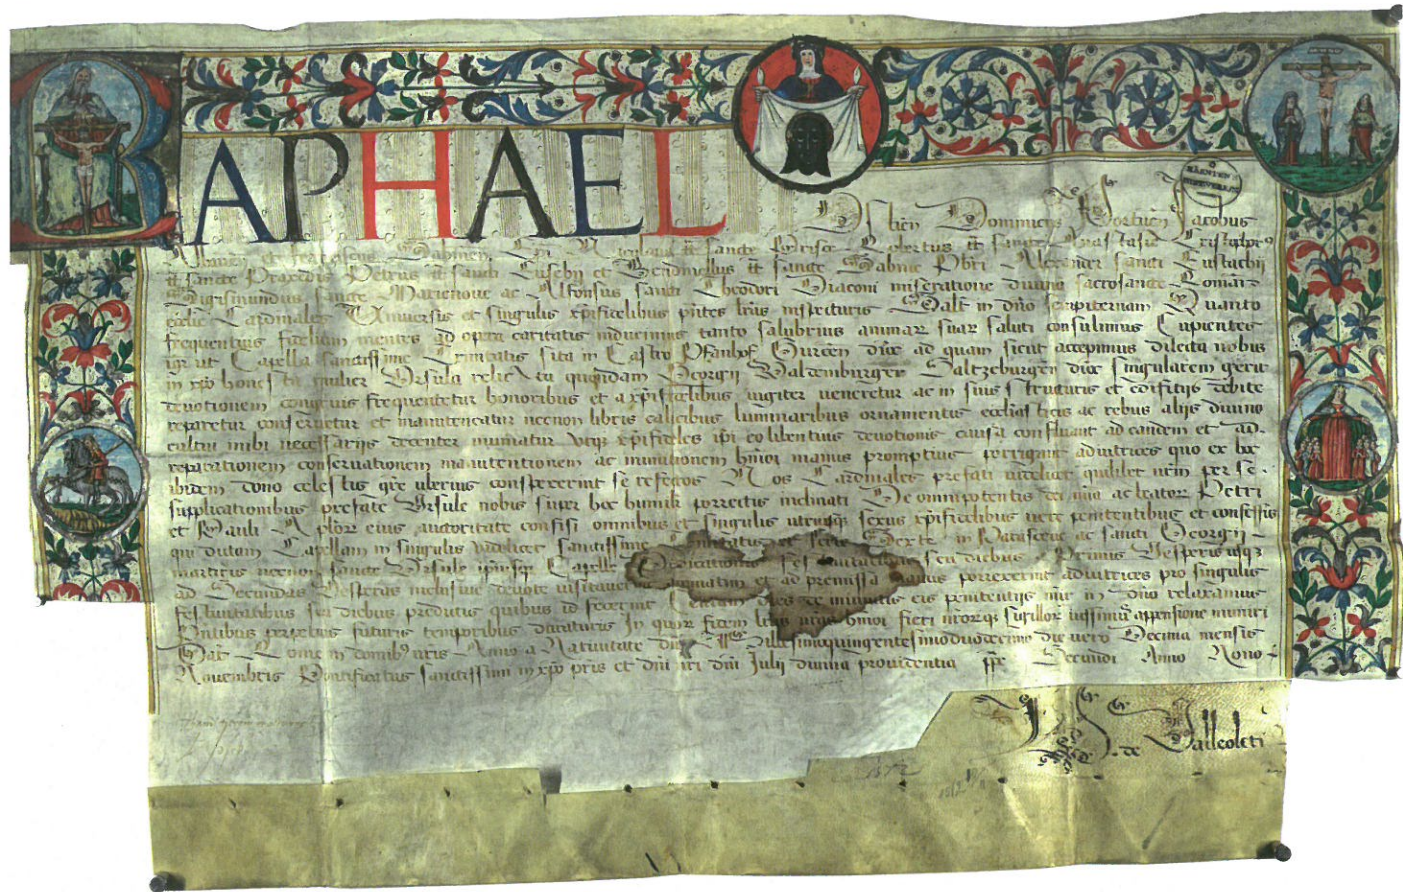 RAPHAEL
Ostien̄ Dominicus Portuen̄ Jacobus
et franciscus Sabinen̄ Ep̄i Nicolaus tt̄ sancte Prisce Robertus tt̄ sancte Anastasie Cristoforꝰ
tt̄ sancte Praxedis Petrus tt̄ sancti Eusebij et Bendinellus tt̄ sancte Sabine Pbr̄i Alexander sancti Eustachij
Sigismundus sancte Marienoue ac Alfonsus sancti Theodori Diaconi miseratione diuina sacrosancte Romāe
Cardinales Vniuersis et singulis xp̄ifidelibus pn̄tes lr̄as inspecturis Salt̄ in dn̄o sempiternam Quanto
frequentius fidelium mentes ad opera caritatis inducimus tanto salubrius animarꝝ suarꝝ saluti consulimus Cupientes
igr̄ ut Capella sanctissime Trinitatis sita in Castro Gurcēn dioc̄ ad quam sicut accepimus dilecta nobis
in xp̄o honesta mulier Vrsula relicta quondam Georgij Saltzeburgeñ dioc̄ singularem gerit
deuotionem congruis frequentetur honoribus et a xp̄ifidelibus iugiter veneretur ac in suis structuris et edifitijs debite
reparetur conseruetur et manuteneatur necnon libris calicibus luminaribus ornamentis ecclias ticis ac rebus alijs diuino
cultui inibi necessarijs decenter muniatur Vtqꝫ xp̄ifideles ip̄i eo libentius deuotionis causa confluant ad eandem et ad
reparationem conseruationem manutentionem ac munitionem hm̄oi manus promptius porrigant adiutrices quo ex hoc
ibidem dono celestis gr̄e vberius conspexerint se refectos Nos Cardinales prefati videlicet quilibet nr̄m per se
supplicationibus prefate Vrsule nobis super hoc humilr̄ porrectis inclinati De omnipotentis dei mia ac beatorꝝ Petri
et Pauli Aplorꝝ eius auctoritate confisi omnibus et singulis utriusqꝫ sexus xp̄ifidelibus vere penitentibus et confessis
qui dictam Capellam in singulis videlicet sanctissime Trinitatis et Sexte in Parasceue ac sancti Georgij
martiris necnon sancte Vrsule ipiusqꝫ Capelle Dedicationis festiuitatibus seu diebus a Primis Vesperis usqꝫ
ad Secundas Vesperas inclusiue deuote visitauerint annuatim et ad premissa manus porrexerint adiutrices pro singulis
festiuitatibus seu diebus predictis quibus id fecerint Centum dies de iniunctis eis penitentijs mi͞r in dn̄o relaxamus
Pn̄tibus perpetuis futuris temporibus duraturis In quorꝝ fidem lr̄as nr̄as hm̄oi fieri nr̄orqꝫ sigillorꝝ iussimus appensione muniri
Dat̄ Rome in domibꝰ nr̄is Anno a Natiuitate dn̄i Millesimoquingentesimoduodecimo die vero Decima mensis
Nouembris Pontificatus sanctissimi in xp̄o pr̄is et dn̄i nr̄i dn̄i Julij diuina prouidentia pp̄e Secundi Anno Nono
de Valleoleti
1512